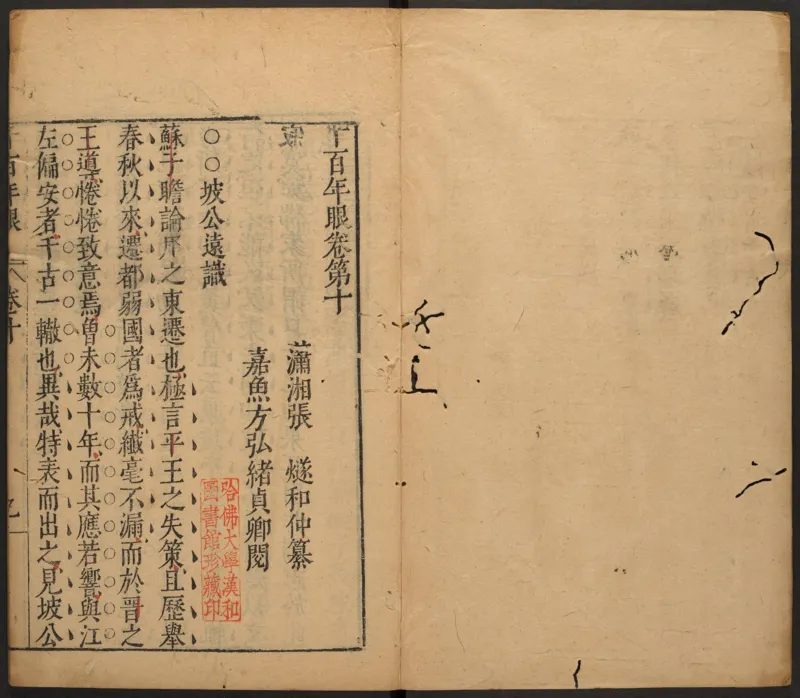 千百年眼卷第十
瀟湘張 燧和仲纂
嘉魚方弘緒貞卿閱
○○坡公遠識
蘇子瞻論周之東遷也極言平王之失策且歷舉
春秋以來遷都弱國者爲戒纖毫不漏而於晋之
王導惓惓致意焉曾未數十年而其應若響與江
左偏安者千古一轍也異哉特表而出之見坡公
千百年眼 卷十
哈佛大學漢和
圖書館珍藏印